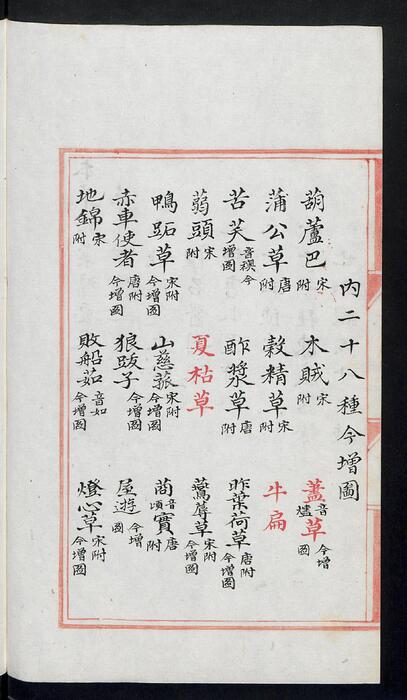 內二十八種今增圖
葫蘆巴宋附 木賊宋附 藎草音燼今增圖
蒲公草唐附 穀精草宋附 牛扁
苦芺音襖今增圖 酢漿草唐附 昨葉荷草唐附今增圖
蒻頭宋附 夏枯草 鷰蓐草宋附今增圖
鴨跖草宋附今增圖 山慈菰宋附今增圖 實音頃唐附
赤車使者唐附今增圖 狼跋子今增圖 屋遊今增圖
地錦宋附 敗船茹音如今增圖 燈心草宋附今增圖